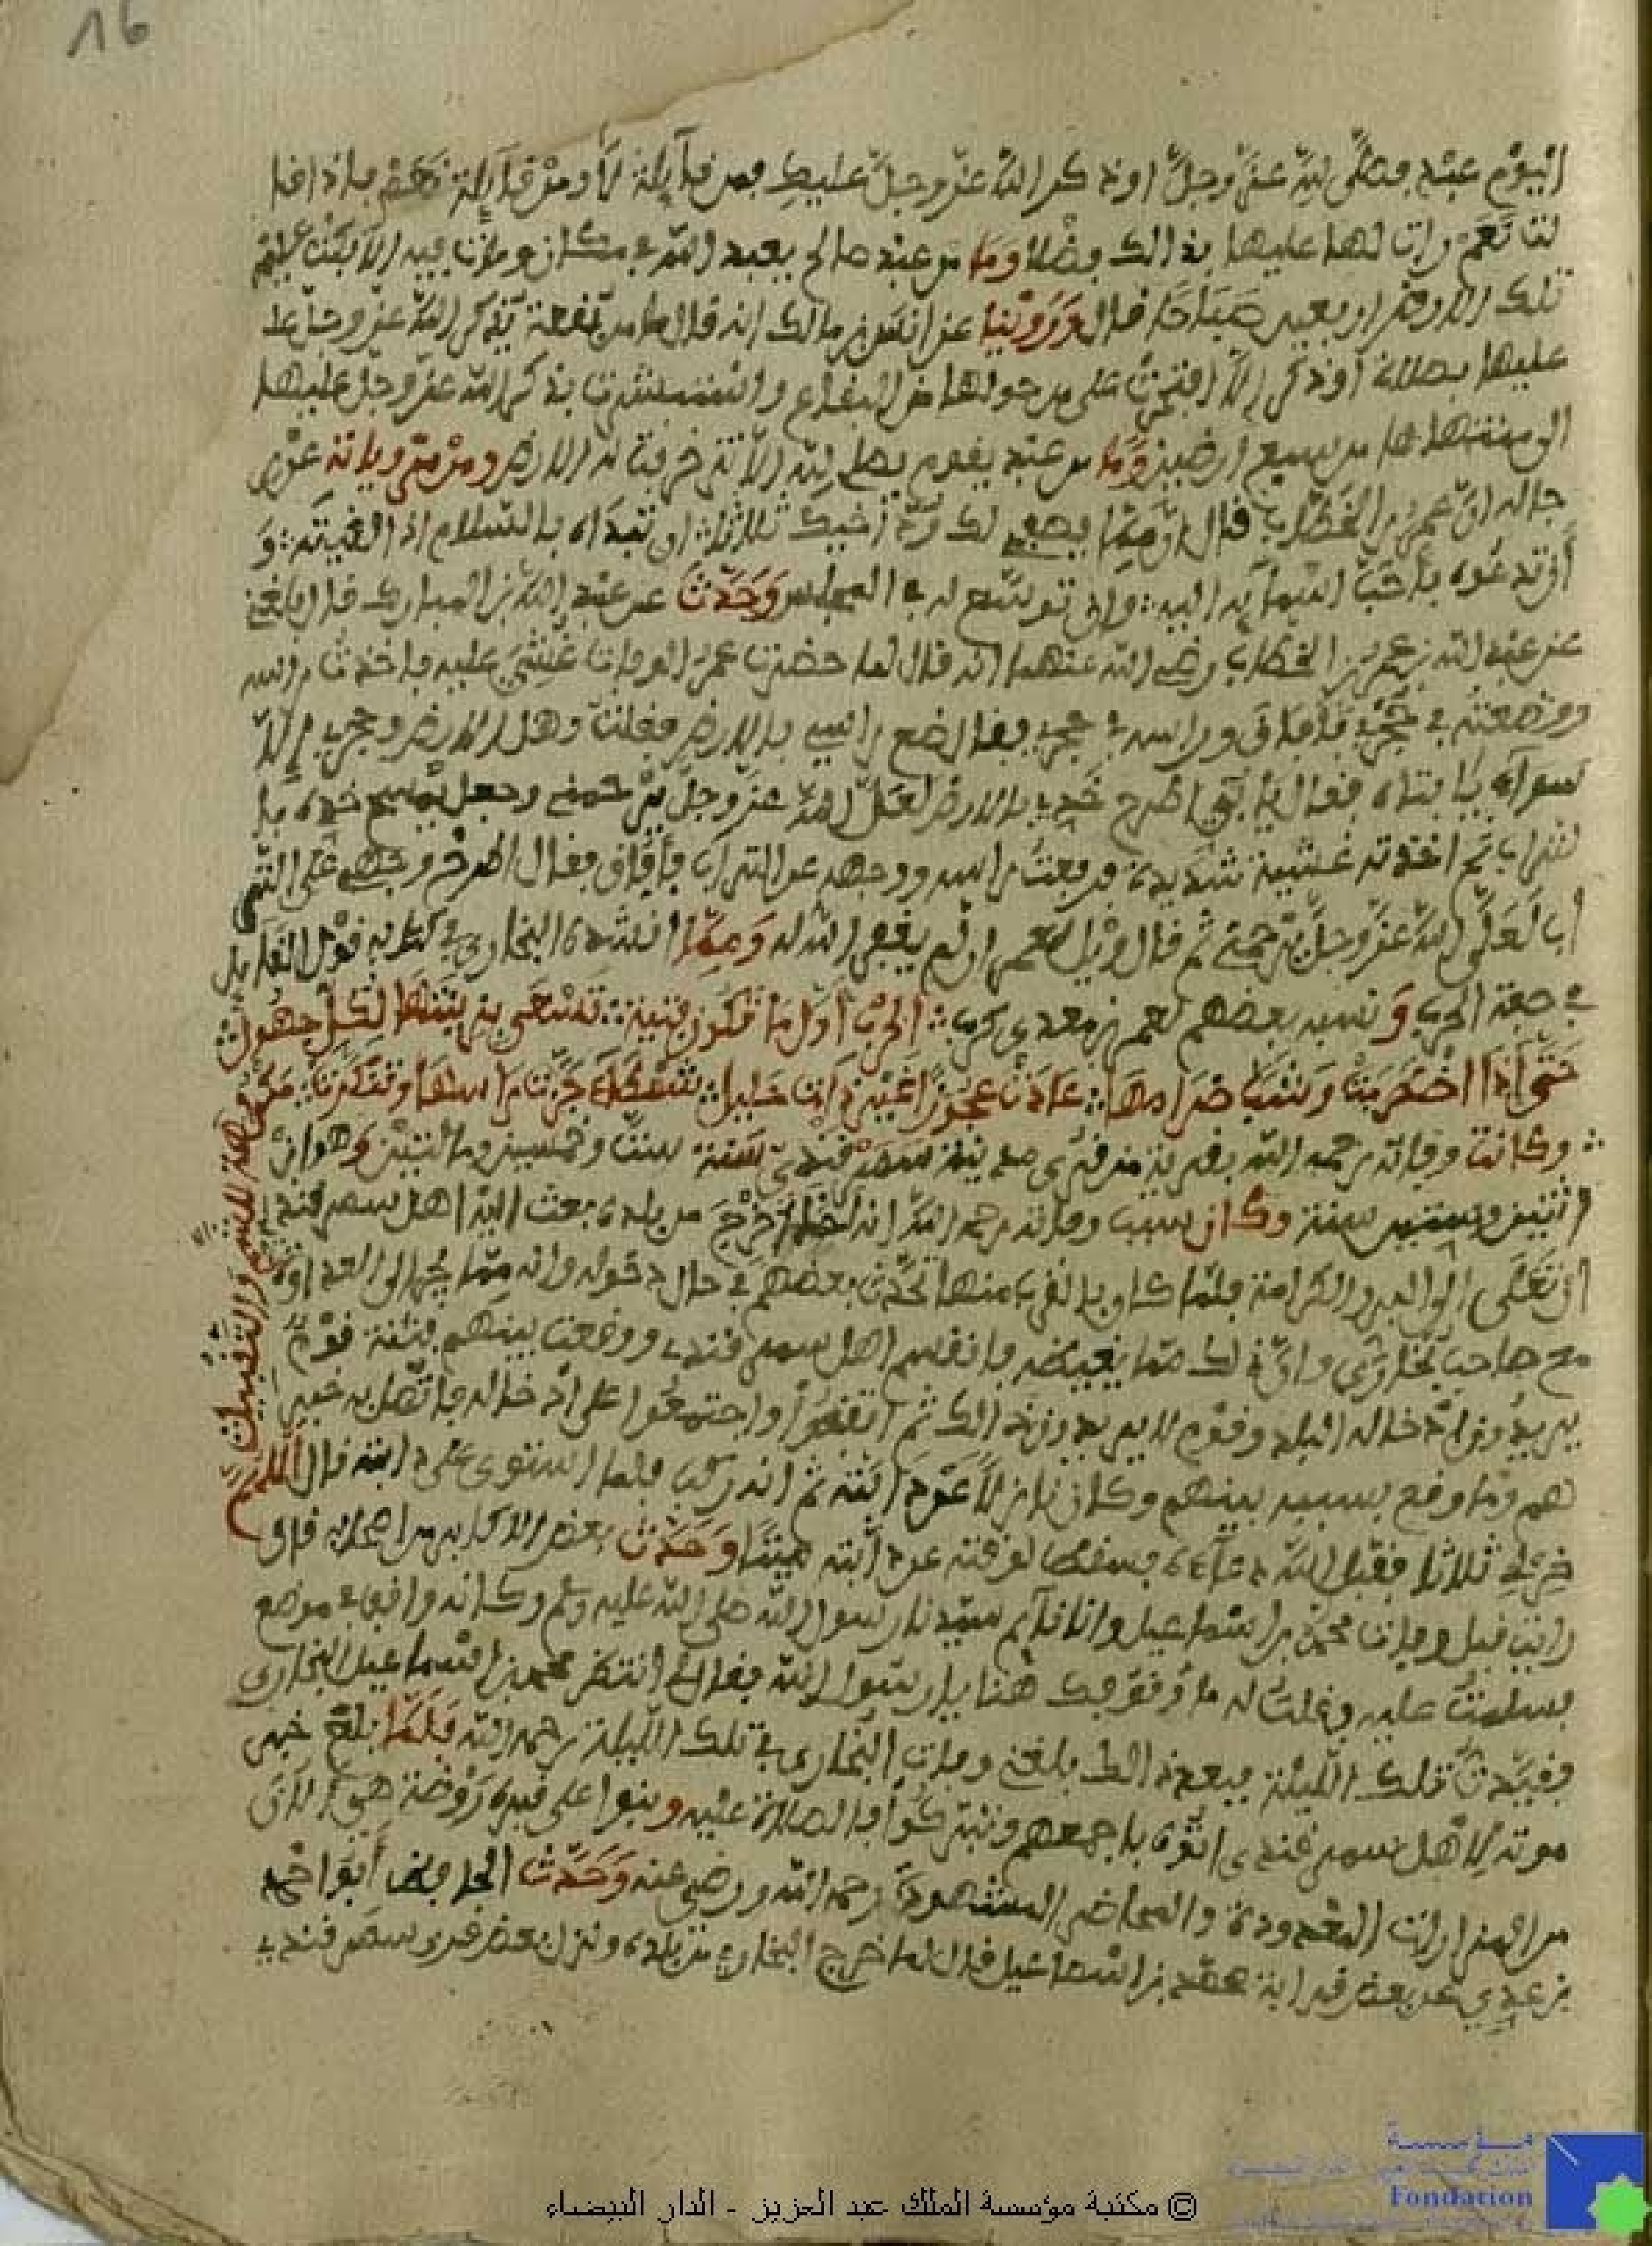 16
اليوم عبد فصلى لله عز وجل اوذكر الله عز وجل عليك فمن قآيلة لا ومن قآيلة نعم فاذا قا
لت نعم رات لها عليها بذالك فضلا وما من عبد صالح يعبد الله في مكان ومات فيه الا بكت عليه
تلك الارض اربعين صباحا قال وروينا عن انس بن مالك انه قال ما من بقعة يذكر الله عز وجل
عليها بصلاة اوذكر الا افتخرت على من حولها من البقاع واستبشرت بذكر الله عز وجل عليها
الى منتهاها من سبع ارضين وما من عبد يقوم يصلي لله الا تزخرفت له الارض ومن مروياته عن
ان عمر بن الخطاب قال ان مما يصفي لك ود اخيك ثلاثا ان تبدأه بالسلام اذا لقيته و
أن تدعوه بأحب اسمآيه اليه وان توسع له في المجلس وحدث عن عبد الله بن المبارك قال بلغني
عن عبد الله بن عمر بن الخطاب رضي الله عنهما انه قال لما حضرت عمر الوفات غشي عليه فاخذت راسه
ووضعته في حجري فأفاق وراسه في حجري فقال ضع راسي بالارض فقلت وهل الارض وحجري إلا
سوآء يا ابتاه فقال يا بني اطرح خدي بالارض لعل الله عز وجل يرحمني وجعل يمسح خده با
لتراب ثم اخذته غشية شديدة فرفعت راسه ووجهه عن التراب فأفاق فقال اطرح وجهي على التر
اب لعل الله عز وجل يرحمني ثم قال ويل لعمر ان لم يغفر الله له ومما انشده البخاري في كتابه قول القايل
في صفة الحرب ونسبه بعضهم لعمر بن معدي كرب الحرب أول ما تكون فتية تسعى بزينتها لكل جهول
حتى اذا اضطرمت وشب ضرامها عادت عجوزا غير ذات خليل شمطاء جزت راسها وتنكرت مكروهة للشم والتقبيل
وكانت وفاته رحمه الله بقرية من قرى مدينة سمرقندي سنة ست وخمسين ومائتين وهو ابن
اثنين وستين سنة وكان سبب وفاته رحمه الله انه لما خرج من بلده بعث اليه اهل سمرقندي
ان تعلى الى البر والكرامة فلما كان بالقرب منها تحدث بعضهم في حال دخوله وانه مما يجر الى العداوة
مع صاحب بخاري وان ذلك مما يغيضه فانقسم اهل سمرقندي ووقعت بينهم فتنة فوم
يريدون ادخاله البلد وقوم لا يريدون ذالك ثم اتفقوا واجتمعوا على ادخاله فاتصل به خبر
هم وما وقع بسببه بينهم وكان نازلا عن دابته ثم انه ركب فلما استوى على دابته قال اللهم
خر لي ثلاثا فقبل الله دعآءه فسقط لوقته عن دابته ميتا وحدث بعض الاكابر من اصحابه قال
رايت قبل وفات محمد بن اسماعيل وانا نآيم سيدنا رسول الله صلى الله عليه وسلم وكانه واقف في موضع
فسلمت عليه وقلت له ما وقوفك هنا يا رسول الله فقال لي انتظر محمد بن اسماعيل البخاري
فقيدت تلك الليلة فبعد ذالك بلغني وفات البخاري في تلك الليلة رحمه الله فلما بلغ خبر
موته لأهل سمرقندي اتوه باجمعهم وتبركوا بالصلاة عليه وبنوا على قبره روضة هي الان
من المزارات المعدودة والمحاضر المشهودة رحمه الله ورضي عنه وحدث الحافظ أبو احمد
بن عدي عن بعض قرابة محمد بن اسماعيل قال لما خرج البخاري من بلده ونزل بعض قرى سمرقندي
مؤسسة
Fondation
© مكتبة مؤسسة الملك عبد العزيز - الدار البيضاء